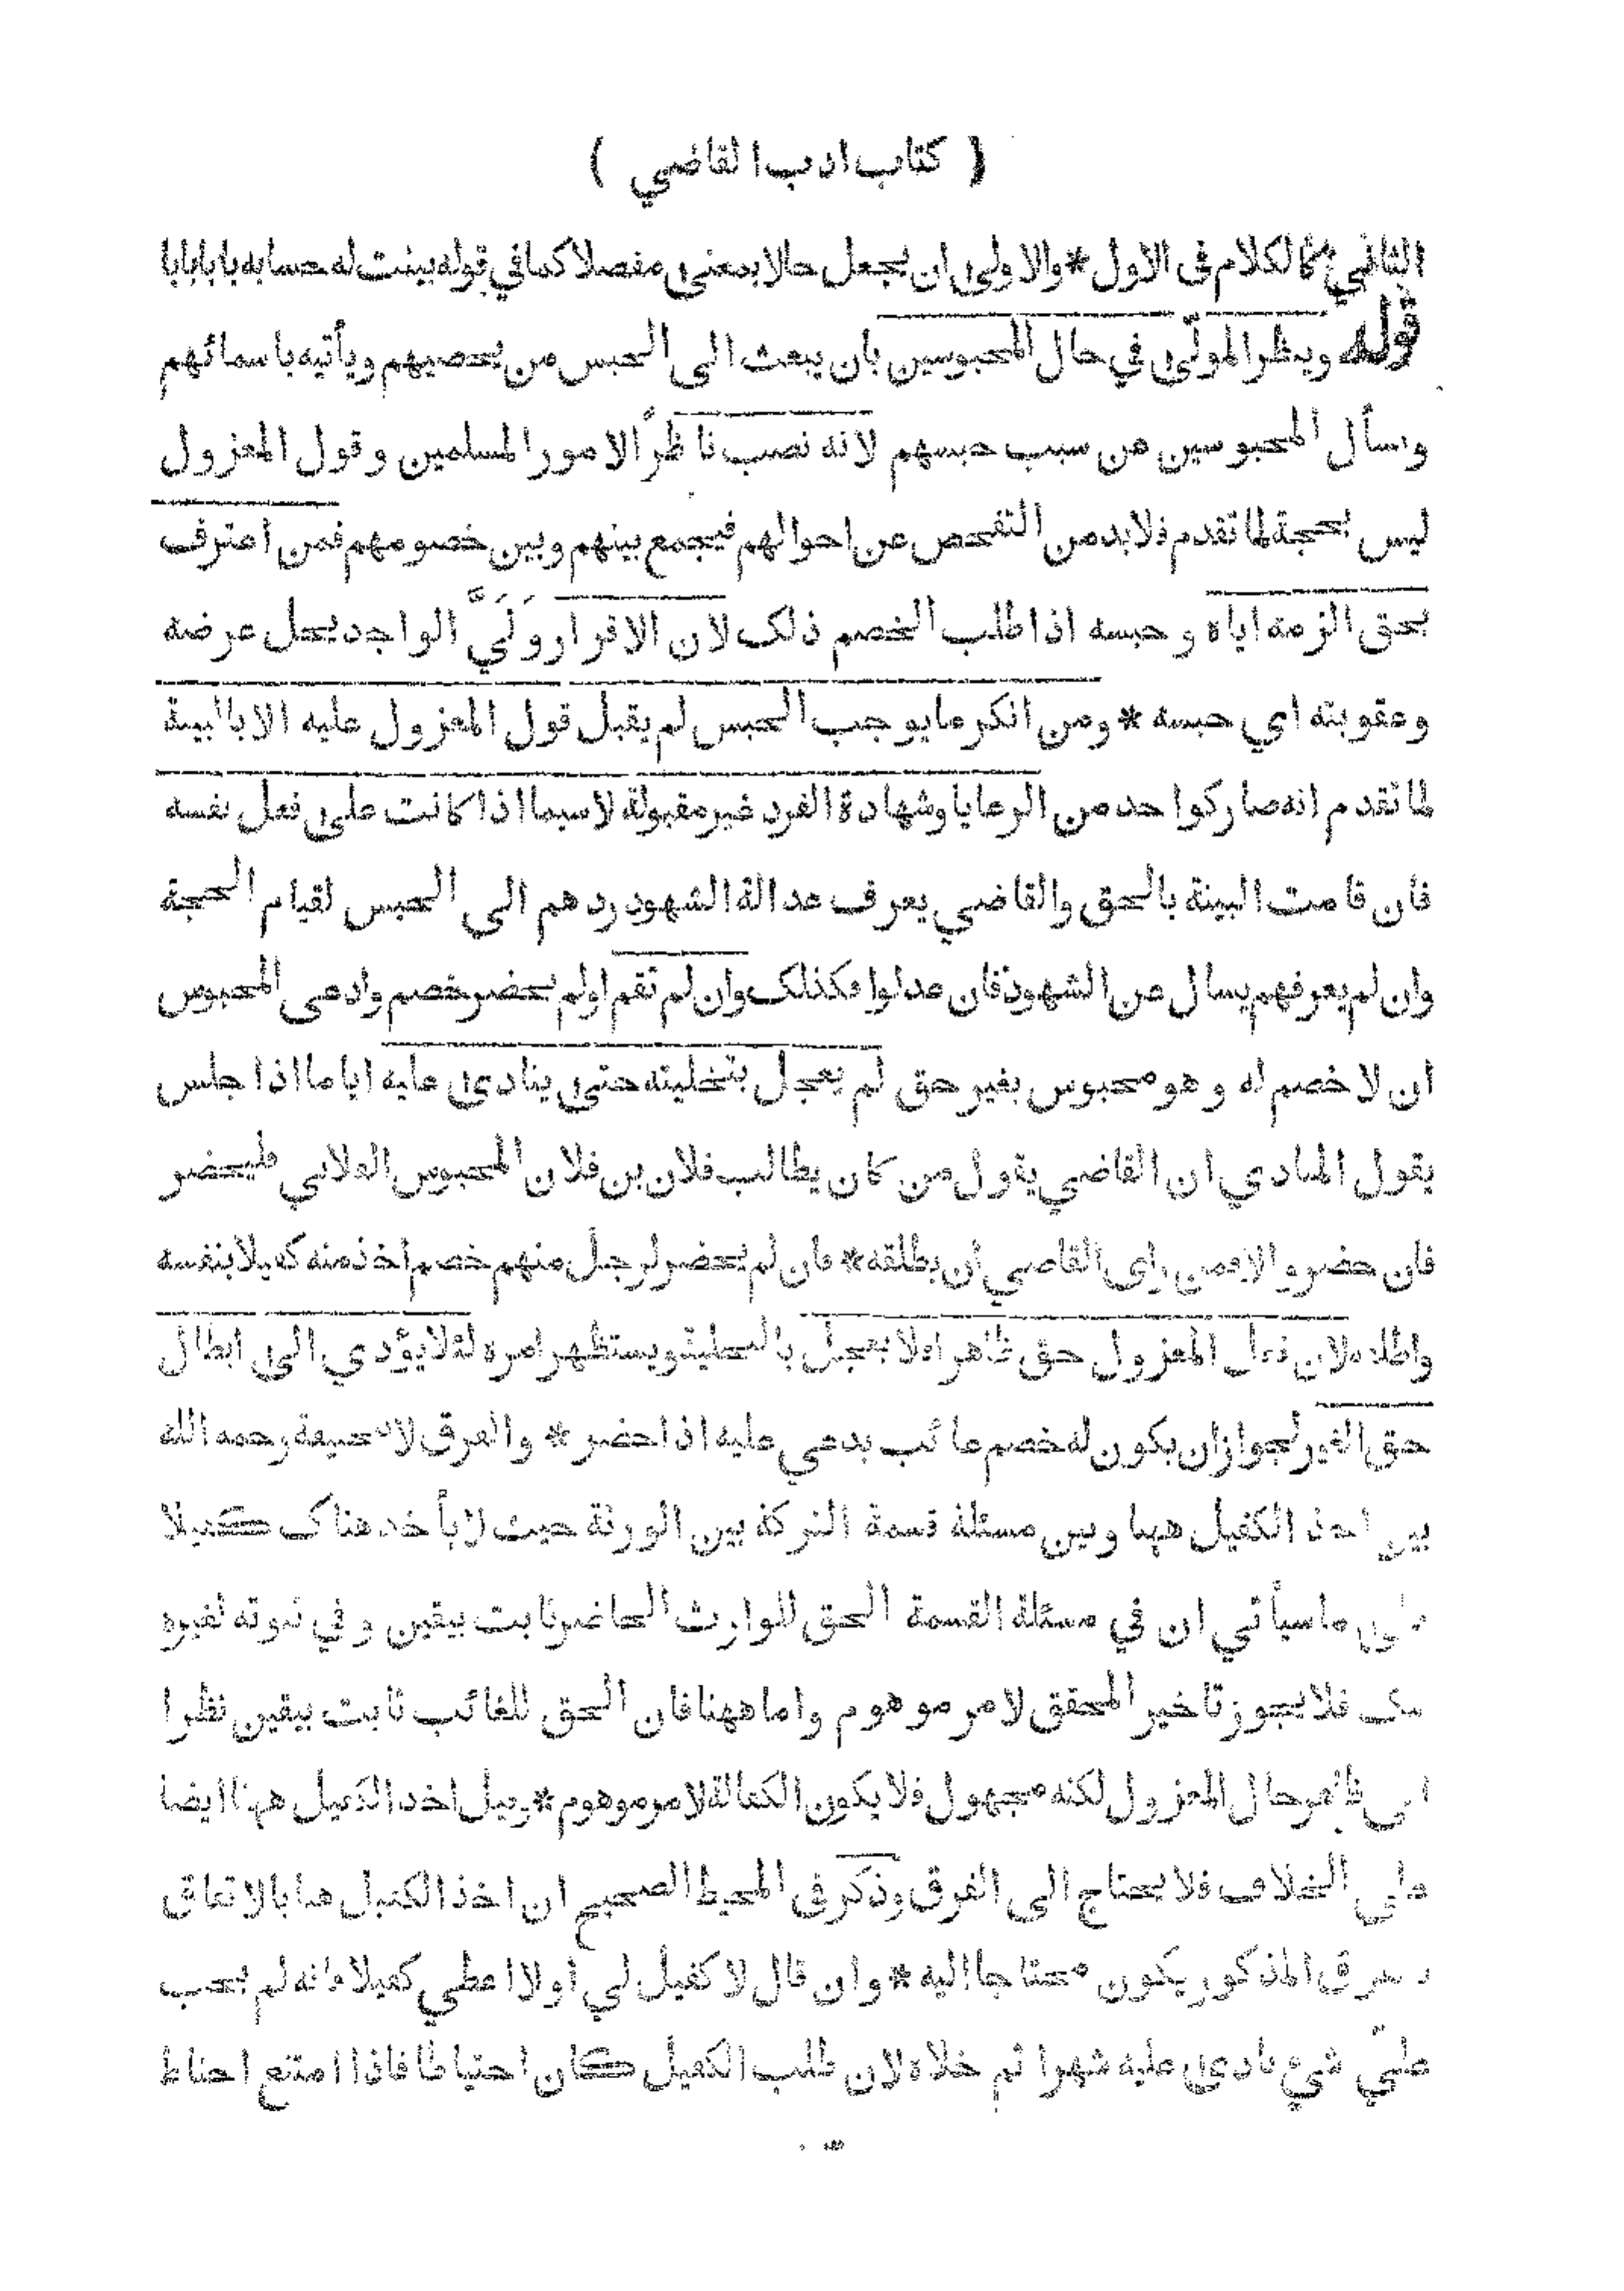 ( كتاب ادب القاضي )
الثاني كالكلام في الاول * والاولى ان يجعل حالا بمعنى مفصلا كما في قوله بينت له حسابه بابا بابا
قوله وينظر المولّى في حال المحبوسين بان يبعث الى الحبس من يحصيهم ويأتيه باسمائهم
وسأل المحبوسين من سبب حبسهم لانه نصب ناظرًا لامور المسلمين وقول المعزول
ليس بحجة لما تقدم فلابد من التفحص عن احوالهم فيجمع بينهم وبين خصومهم فمن اعترف
بحق الزمه اياه وحبسه اذا طلب الخصم ذلك لان الاقرار ولَيَّ الواجد يحل عرضه
وعقوبته اي حبسه * ومن انكر ما يوجب الحبس لم يقبل قول المعزول عليه الا باابينة
لما تقدم انه صار كواحد من الرعايا وشهادة الفرد غير مقبولة لاسيما اذا كانت على فعل نفسه
فان قامت البينة بالحق والقاضي يعرف عدالة الشهود ردهم الى الحبس لقيام الحجة
وان لم يعرفهم يسال عن الشهود فان عدلوا فكذلك وان لم تقم او لم يحضر خصم وادعى المحبوس
ان لا خصم له وهو محبوس بغير حق لم يعجل بتخليته حتى ينادى عليه اياما اذا جلس
يقول المنادي ان القاضي يقول من كان يطالب فلان بن فلان المحبوس الفلاني فليحضر
فان حضر والا فمن راى القاضي ان يطلقه * فان لم يحضر لرجل منهم خصم اخذ منه كفيلا بنفسه
واطلقه لان فعل المعزول حق ظاهرا فلا يعجل بالتخلية ويستظهر امره لئلا يؤدي الى ابطال
حق الغير لجواز ان يكون له خصم غائب يدعي عليه اذا حضر * والفرق لابي حنيفة رحمه الله
بين اخذ الكفيل ههنا وبين مسئلة قسمة التركة بين الورثة حيث لا يأخذ هناك كفيلا
على ما سيأتي ان في مسئلة القسمة الحق للوارث الحاضر ثابت بيقين وفي ثبوته لغيره
شك فلا يجوز تاخير المحقق لامر موهوم واما ههنا فان الحق للغائب ثابت بيقين نظرا
الى ظاهر حال المعزول لكنه مجهول فلا يكون الكفالة لامر موهوم * وقيل اخذ الكفيل ههنا ايضا
على الخلاف فلا يحتاج الى الفرق وذكر في المحيط الصحيح ان اخذ الكفيل هنا بالاتفاق
فالفرق المذكور يكون محتاجا اليه * وان قال لا كفيل لي او لا اعطي كفيلا فانه لم يجب
عليّ شيء نادى عليه شهرا ثم خلاه لان طلب الكفيل كان احتياطا فاذا امتنع احتاط